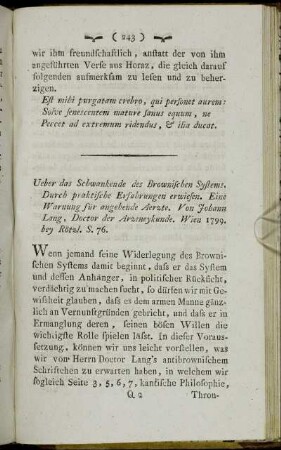 ( 243 )
wir ihm freundschaftlich, anstatt der von ihm
angeführten Verse aus Horaz, die gleich darauf
folgenden aufmerksam zu lesen und zu beher-
zigen.
Est mihi purgatam crebro, qui personet aurem:
Solve senescentem mature sanus equum, ne
Peccet ad extremum ridendus, & ilia ducat.
Ueber das Schwankende des Brownischen Systems.
Durch praktische Erfahrungen erwiesen. Eine
Warnung für angehende Aerzte. Von Johann
Lang, Doctor der Arzneykunde. Wien 1799.
bey Rötzl. S. 76.
Wenn jemand seine Widerlegung des Browni-
schen Systems damit beginnt, dass er das System
und dessen Anhänger, in politischer Rücksicht,
verdächtig zu machen sucht, so dürfen wir mit Ge-
wissheit glauben, dass es dem armen Manne gänz-
lich an Vernunftgründen gebricht, und dass er in
Ermanglung deren, seinen bösen Willen die
wichtigste Rolle spielen lässt. In dieser Voraus-
setzung, können wir uns leicht vorstellen, was
wir von Herrn Doctor Lang's antibrownischem
Schriftchen zu erwarten haben, in welchem wir
sogleich Seite 3, 5, 6, 7, kantische Philosophie,
Q 2 Thron-